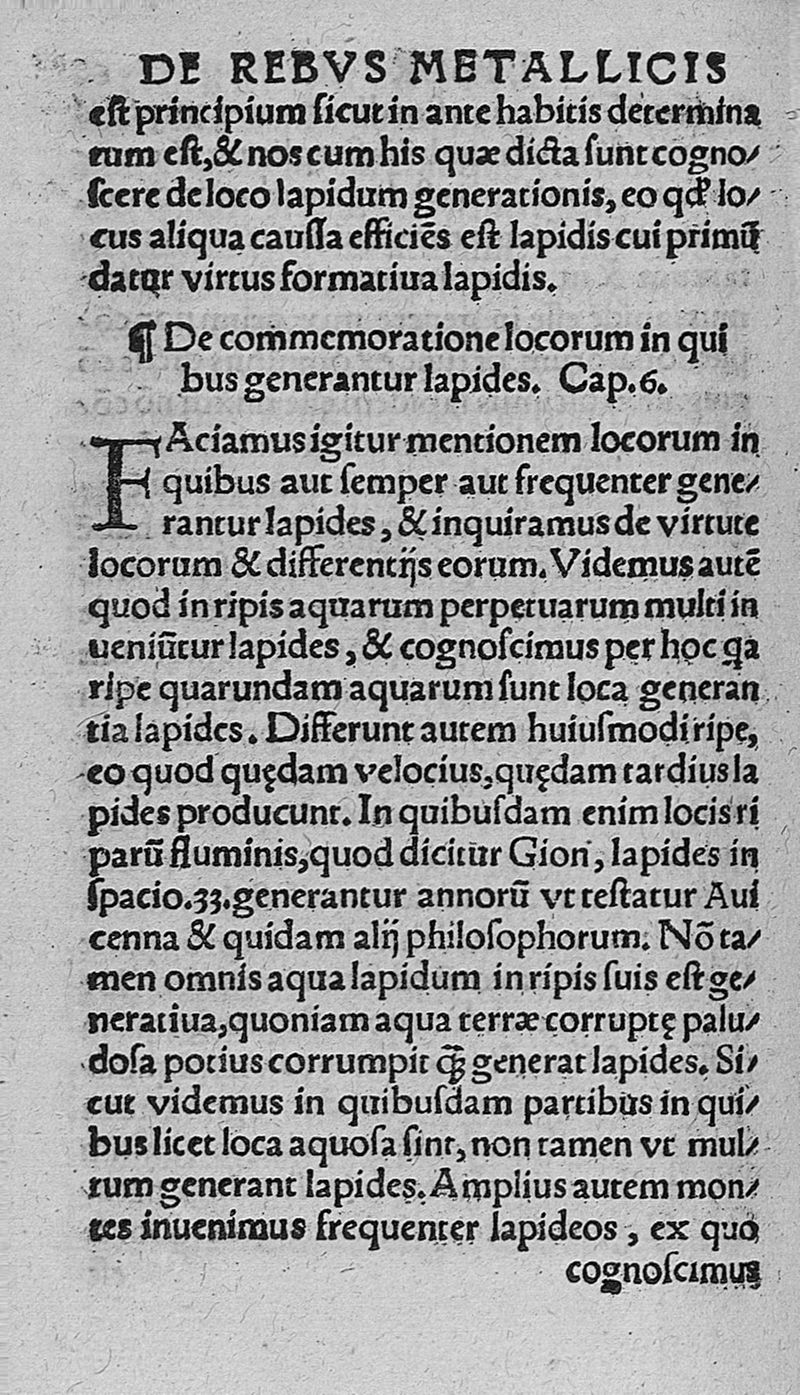 DE REBVS METALLICIS
est principium sicut in ante habitis determina
tum est, & nos cum his quæ dicta sunt cogno/
scere de loco lapidum generationis, eo qđ lo/
cus aliqua caussa efficiēs est lapidis cui primū
datur virtus formatiua lapidis.
¶ De commemoratione locorum in qui
bus generantur lapides. Cap. 6.
FAciamus igitur mentionem locorum in
quibus aut semper aut frequenter gene/
rantur lapides, & inquiramus de virtute
locorum & differentijs eorum. Videmus autē
quod in ripis aquarum perpetuarum multi in
ueniūtur lapides, & cognoscimus per hoc ꝙa
ripe quarundam aquarum sunt loca generan
tia lapides. Differunt autem huiusmodi ripę,
eo quod quędam velocius, quędam tardius la
pides producunt. In quibusdam enim locis ri
parū fluminis, quod dicitur Gion, lapides in
spacio .33. generantur annorū vt testatur Aui
cenna & quidam alij philosophorum. Nō ta/
men omnis aqua lapidum in ripis suis est ge/
neratiua, quoniam aqua terræ corruptę palu/
dosa potius corrumpit ꝙ̄ generat lapides. Si/
cut videmus in quibusdam partibus in qui/
bus licet loca aquosa sint, non tamen vt mul/
tum generant lapides. Amplius autem mon/
tes inuenimus frequenter lapideos, ex quo
cognoscimus